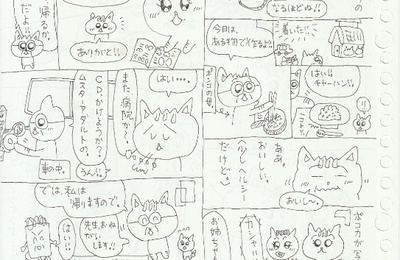 なるほどね!!
着いた!!
今日は、
ある物で作るよ!!
はい!!
チャーハン!!
ああ。
おいしい。
だけど。
おいし〜。
ポコカが写
カシャ!!
お姉ちゃ
ありがと!!
、帰るか。
だよ!!
はし…。
また、病院か…。
CD、かけようか?
ムスターアダルトの。
うん!!
車の中。
では、私は
帰りますので。
先生、おねがい
します!!
はい!!